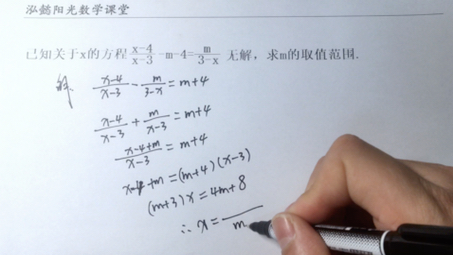 泓懿阳光数学课堂
已知关于x的方程\frac{x-4}{x-3}-m-4=\frac{m}{3-x} 无解，求m的取值范围.
解 \frac{x-4}{x-3} - \frac{m}{3-x} = m+4
\frac{x-4}{x-3} + \frac{m}{x-3} = m+4
\frac{x-4+m}{x-3} = m+4
x-4+m = (m+4)(x-3)
(m+3)x = 4m+8
∴ x = \frac{}{m}